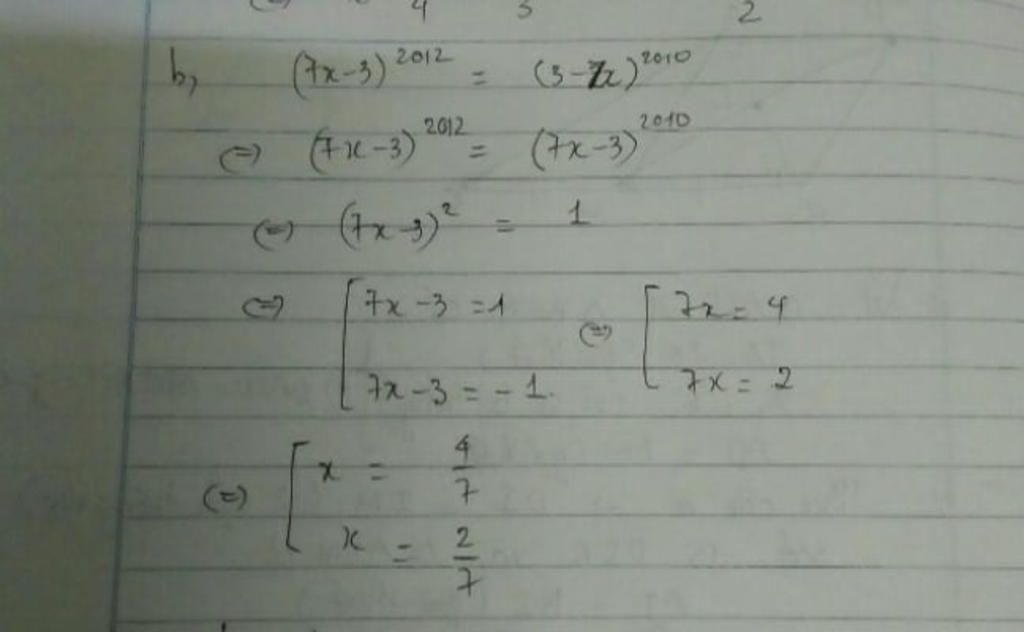 4 3 2
b, (7x-3)^2012 = (3-7x)^2010
(=) (7x-3)^2012 = (7x-3)^2010
(=) (7x-3)^2 = 1
(=) [ 7x-3 = 1 (=) [ 7x = 4
7x-3 = -1. 7x = 2
(=) [ x = 4/7
x = 2/7